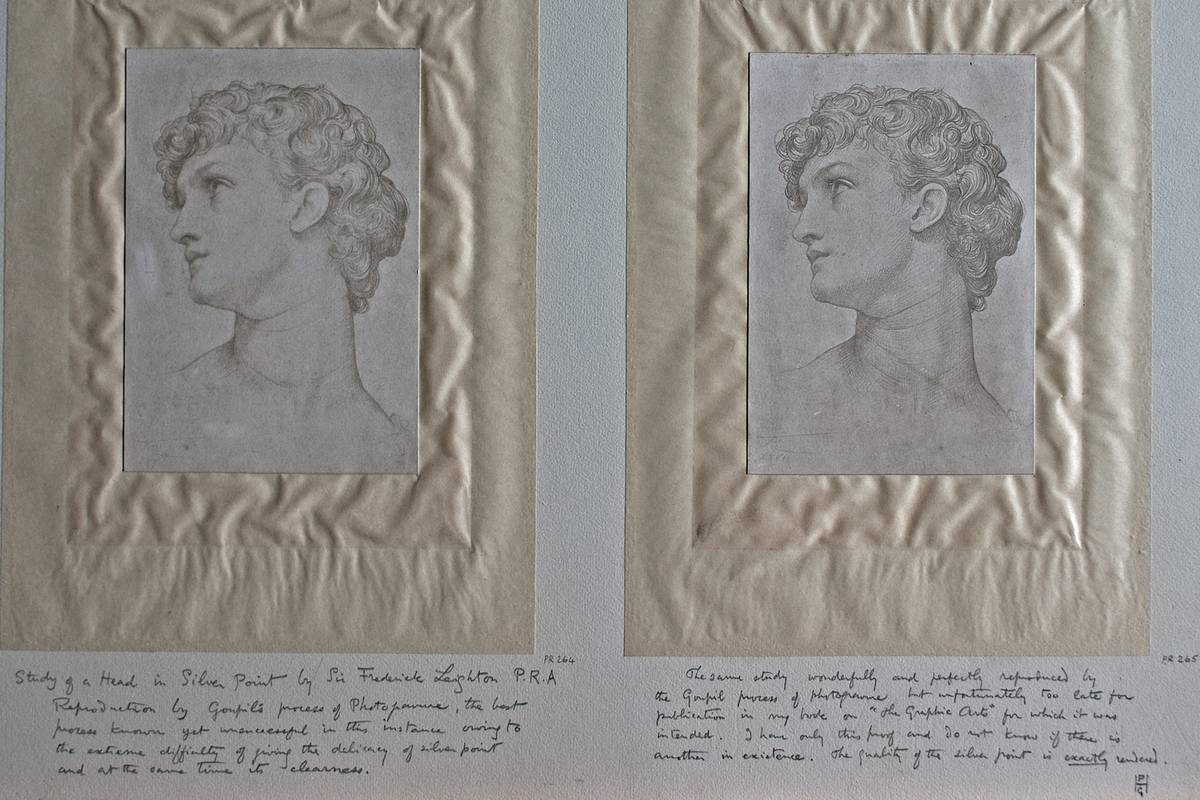 PR 264
Study of a Head in Silver Point by Sir Frederick Leighton P.R.A
Reproduction by Goupil's process of Photogravure, the best
process known yet unsuccessful in this instance owing to
the extreme difficulty of giving the delicacy of silver point
and at the same time its clearness.
PR 265
The same study wonderfully and perfectly reproduced by
the Goupil process of photogravure, but unfortunately too late for
publication in my book on "The Graphic Arts" for which it was
intended. I have only this proof and do not know if there is
another in existence. The quality of the silver point is exactly rendered.
P
G
H